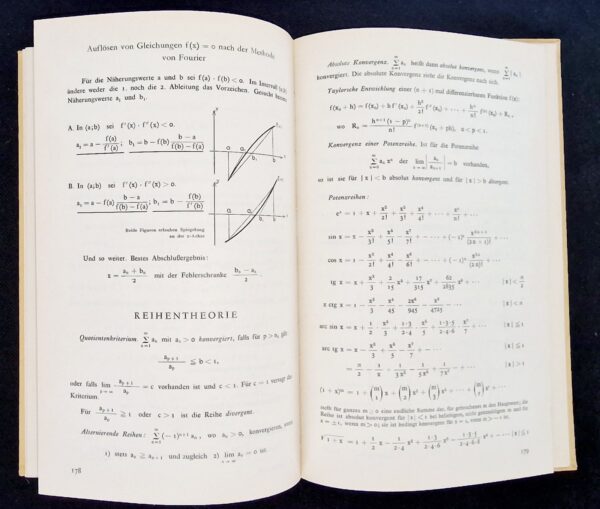 Auflösen von Gleichungen f(x) = 0 nach der Methode
von Fourier
Für die Näherungswerte a und b sei f(a) · f(b) < 0. Im Intervall (a;b)
ändere weder die 1. noch die 2. Ableitung das Vorzeichen. Gesucht bessere
Näherungswerte a₁ und b₁.
A. In (a;b) sei f'(x) · f''(x) < 0.
a₁ = a − f(a)/f'(a); b₁ = b − f(b) (b − a)/(f(b) − f(a))
B. In (a;b) sei f'(x) · f''(x) > 0.
a₁ = a − f(a) (b − a)/(f(b) − f(a)); b₁ = b − f(b)/f'(b)
Beide Figuren erlauben Spiegelung
an der x-Achse
Und so weiter. Bestes Abschlußergebnis:
x = (aₙ + bₙ)/2 mit der Fehlerschranke (bₙ − aₙ)/2.
REIHENTHEORIE
Quotientenkriterium. ∑ aₙ mit aₙ > 0 konvergiert, falls für p > n₀ gilt
aₚ₊₁/aₚ ≦ b < 1,
oder falls lim aₚ₊₁/aₚ = c vorhanden ist und c < 1. Für c = 1 versagt das
Kriterium.
Für aₚ₊₁/aₚ ≧ 1 oder c > 1 ist die Reihe divergent.
Alternierende Reihen: ∑ (−1)ⁿ⁺¹ aₙ, wo aₙ > 0, konvergieren, wenn
1) stets aₙ ≧ aₙ₊₁ und zugleich 2) lim aₙ = 0 ist.
178
Absolute Konvergenz. ∑ aₙ heißt dann absolut konvergent, wenn ∑ |aₙ|
konvergiert. Die absolute Konvergenz zieht die Konvergenz nach sich.
Taylorsche Entwicklung einer (n + 1) mal differenzierbaren Funktion f(x):
f(x₀ + h) = f(x₀) + h f'(x₀) + h²/2! f''(x₀) + · · · + hⁿ/n! f⁽ⁿ⁾(x₀) + Rₙ,
wo Rₙ = hⁿ⁺¹(1 − p)ⁿ/n! f⁽ⁿ⁺¹⁾(x₀ + ph), 0 < p < 1.
Konvergenz einer Potenzreihe. Ist für die Potenzreihe
∑ aₙ xⁿ der lim |aₙ/aₙ₊₁| = b vorhanden,
so ist sie für |x| < b absolut konvergent und für |x| > b divergent.
Potenzreihen:
eˣ = 1 + x + x²/2! + x³/3! + x⁴/4! + · · · + xⁿ/n! + · · ·
sin x = x − x³/3! + x⁵/5! − x⁷/7! + · · · + (−1)ⁿ x²ⁿ⁺¹/(2n + 1)! + · · ·
cos x = 1 − x²/2! + x⁴/4! − x⁶/6! + · · · + (−1)ⁿ x²ⁿ/(2n)! + · · ·
tg x = x + x³/3 + 2/15 x⁵ + 17/315 x⁷ + 62/2835 x⁹ + · · · |x| < π/2
x ctg x = 1 − x²/3 − x⁴/45 − 2x⁶/945 − x⁸/4725 − · · · |x| < π
arc sin x = x + 1/2 · x³/3 + 1·3/2·4 · x⁵/5 + 1·3·5/2·4·6 · x⁷/7 + · · · |x| ≦ 1
arc tg x = x − x³/3 + x⁵/5 − x⁷/7 + · · · |x| ≦ 1
= π/2 − 1/x + 1/3x³ − 1/5x⁵ + 1/7x⁷ − · · · |x| > 1
(1 + x)ᵐ = 1 + (m 1) x + (m 2) x² + (m 3) x³ + (m 4) x⁴ + · · ·
stellt für ganzes m ≧ 0 eine endliche Summe dar, für gebrochenes m den Hauptwert; die
Reihe ist absolut konvergent für |x| < 1 bei beliebigem, nicht ganzzahligem m und für
x = ± 1, wenn m > 0; sie ist bedingt konvergent für x = 1, wenn
√1 + x = 1 + 1/2 x − 1/2·4 x² + 1·3/2·4·6 x³ − 1·3·5/2·4·6·8 x⁴ + · · · |x| ≦ 1
179